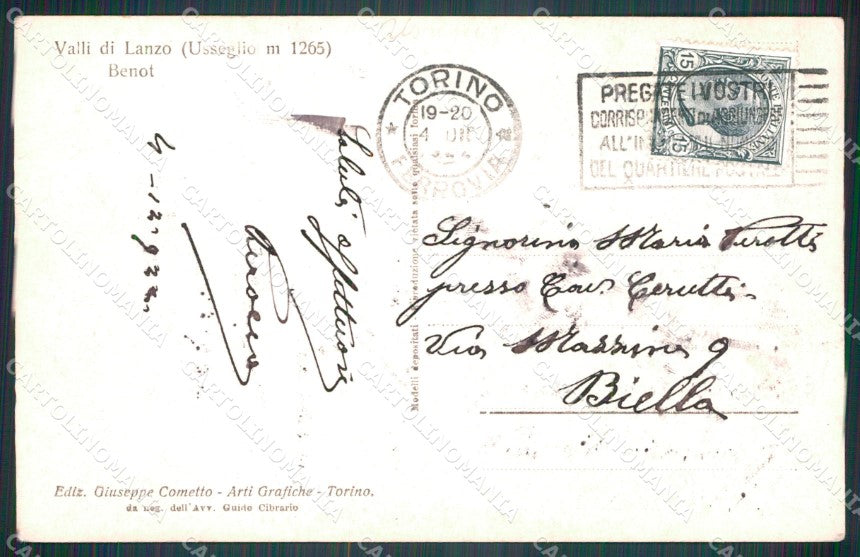 Valli di Lanzo (Usseglio m 1265)
Benot
TORINO
19-20
FERROVIA
PREGATE I VOSTRI
ALL'IN
DEL QUARTIERE POSTALE
15
15
4-12-922.
Saluti affettuosi
Modelli depositati riproduzione vietata sotto qualsiasi forma
Signorina Maria Perotti
presso Cav. Cerutti
Via Mazzini 9
Biella
Ediz. Giuseppe Cometto - Arti Grafiche - Torino.
da neg. dell'Avv. Guido Cibrario
CARTOLINOMANIA